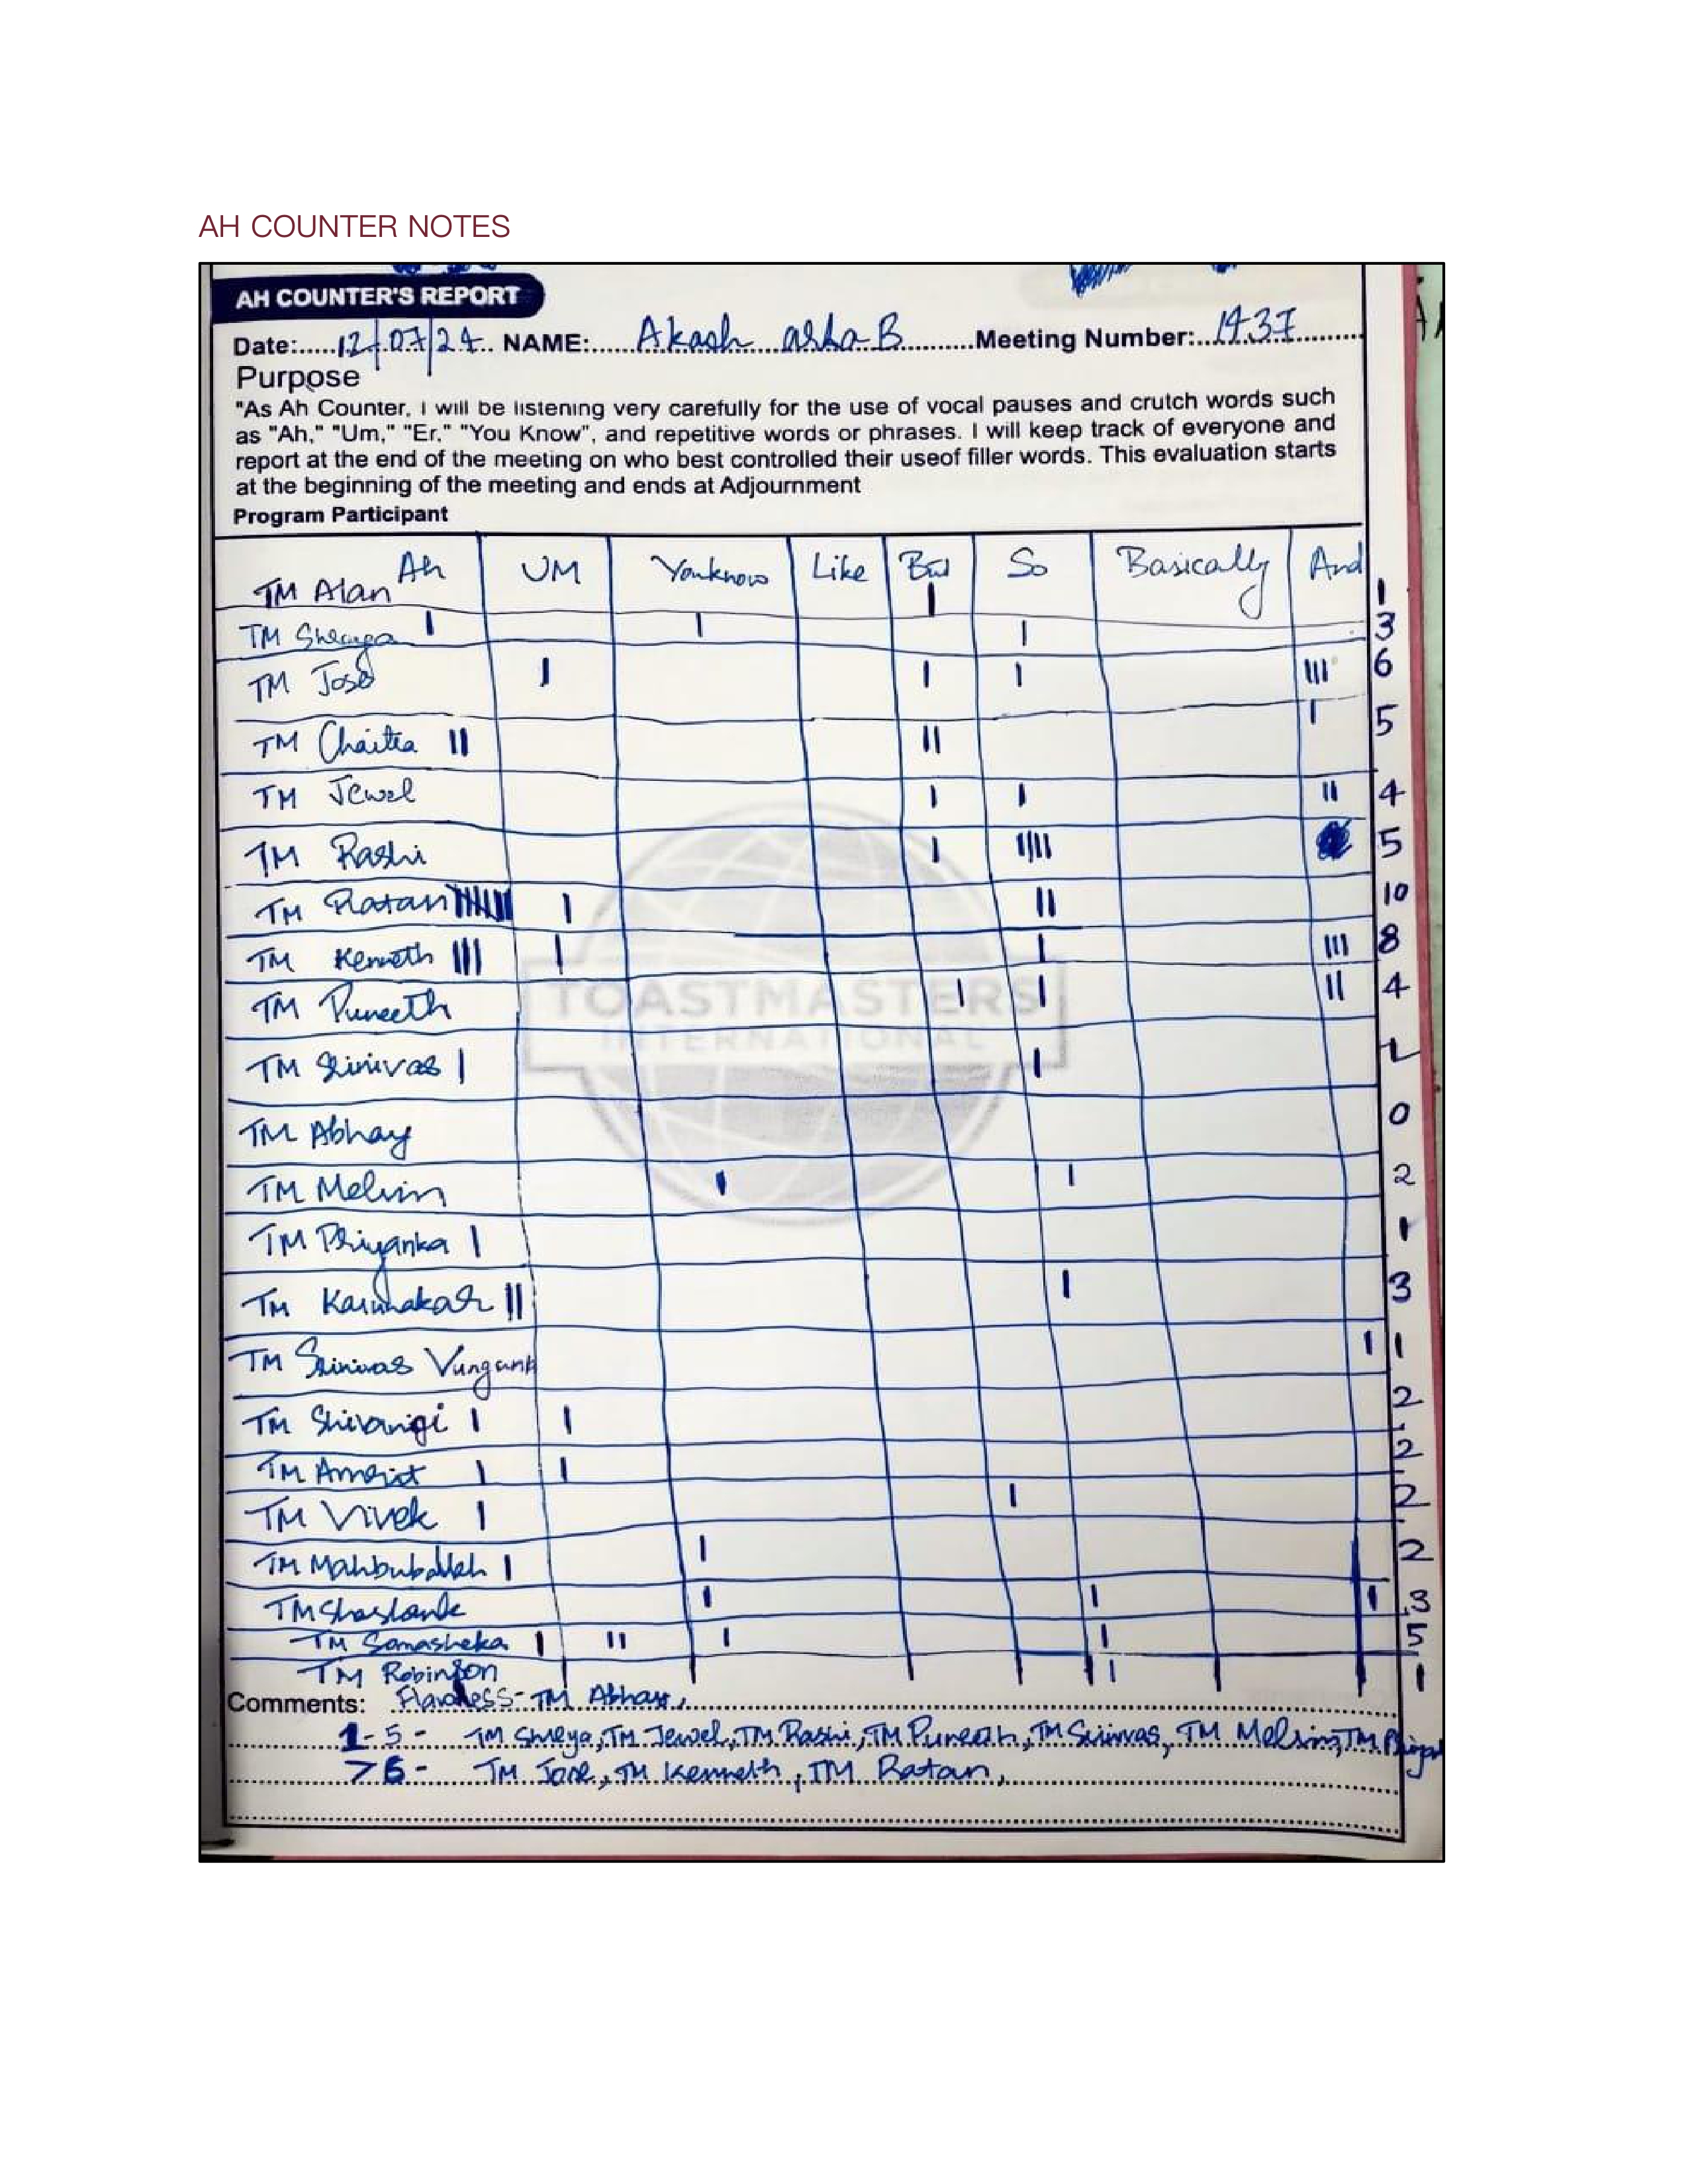 AH COUNTER NOTES
AH COUNTER'S REPORT
Date:.....12/07/24.. NAME:......Akash asha B..........Meeting Number:..1437..........
Purpose
"As Ah Counter, I will be listening very carefully for the use of vocal pauses and crutch words such
as "Ah," "Um," "Er," "You Know", and repetitive words or phrases. I will keep track of everyone and
report at the end of the meeting on who best controlled their useof filler words. This evaluation starts
at the beginning of the meeting and ends at Adjournment
Program Participant
Ah UM Youknow Like But So Basically And
TM Alan | 1
TM Shreya | | | 3
TM Jose | | | ||| 6
TM Chaitra || || | 5
TM Jewel | | || 4
TM Rashi | |||| 5
TM Ratan ||||||| | || 10
TM Kenneth ||| | | ||| 8
TM Puneeth | | || 4
TM Srinivas | |
TM Abhay 0
TM Melvin | | 2
TM Priyanka | 1
TM Karunakar || | 3
TM Srinivas | 1
TM Shivangi | | 2
TM Amrist | | 2
TM Vivek | | 2
TM Mahbuballah | | 2
TM Shashank | | | 3
TM Somasheka | || | | 5
TM Robinson | 1
TOASTMASTERS
INTERNATIONAL
Comments: Flawless - TM Abhay,
1-5 - TM Shreya, TM Jewel, TM Rashi, TM Puneeth, TM Srinivas, TM Melvin, TM
>6 - TM Jose, TM Kenneth, TM Ratan,